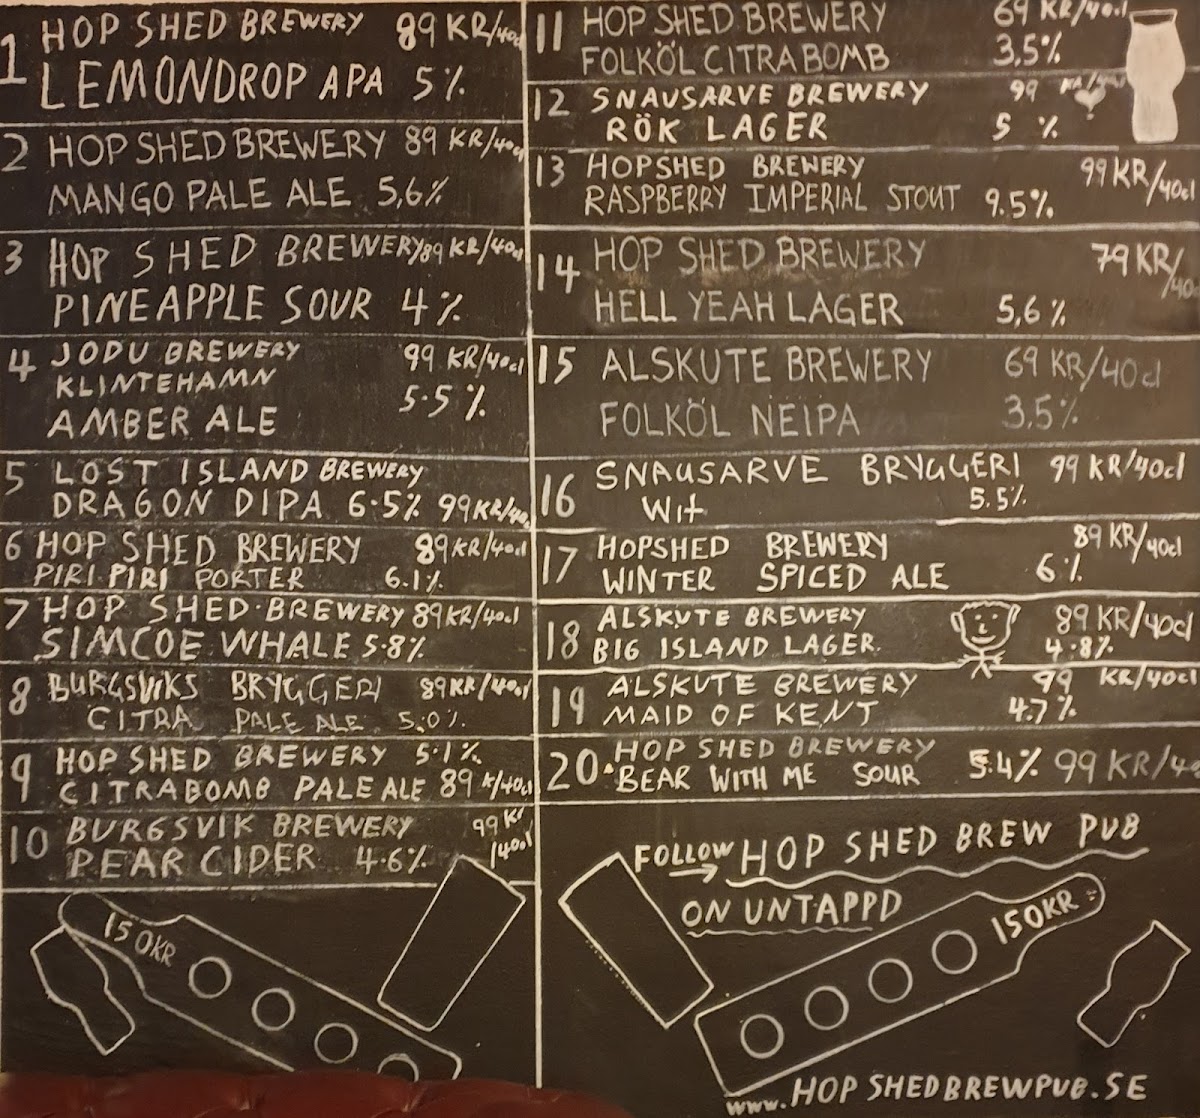 1 HOP SHED BREWERY 89 KR/40cl
LEMONDROP APA 5%
2 HOP SHED BREWERY 89 KR/40cl
MANGO PALE ALE 5,6%
3 HOP SHED BREWERY 89 KR/40cl
PINEAPPLE SOUR 4%
4 JODU BREWERY 99 KR/40cl
KLINTEHAMN
AMBER ALE 5.5%
5 LOST ISLAND BREWERY
DRAGON DIPA 6.5% 99KR/40
6 HOP SHED BREWERY 89KR/40cl
PIRI PIRI PORTER 6.1%
7 HOP SHED BREWERY 89KR/40cl
SIMCOE WHALE 5.8%
8 BURGSVIKS BRYGGERI 89KR/40cl
CITRA PALE ALE 5.0%
9 HOP SHED BREWERY 5.1%
CITRABOMB PALE ALE 89 K/40cl
10 BURGSVIK BREWERY 99 Kr
PEAR CIDER 4.6% /40cl
150KR
11 HOP SHED BREWERY 69 KR/40cl
FOLKÖL CITRABOMB 3,5%
12 SNAUSARVE BREWERY 99 KR/40cl
RÖK LAGER 5 %
13 HOPSHED BREWERY 99KR/40cl
RASPBERRY IMPERIAL STOUT 9.5%
14 HOP SHED BREWERY 79KR/40
HELL YEAH LAGER 5,6%
15 ALSKUTE BREWERY 69 KR/40cl
FOLKÖL NEIPA 3,5%
16 SNAUSARVE BRYGGERI 99 KR/40cl
Wit 5.5%
17 HOPSHED BREWERY 89 KR/40cl
WINTER SPICED ALE 6%
18 ALSKUTE BREWERY 89 KR/40cl
BIG ISLAND LAGER 4.8%
19 ALSKUTE BREWERY 99 KR/40cl
MAID OF KENT 4.7%
20 HOP SHED BREWERY
BEAR WITH ME SOUR 5.4% 99 KR/40
FOLLOW → HOP SHED BREW PUB
ON UNTAPPD
150KR
www.HOPSHEDBREWPUB.SE